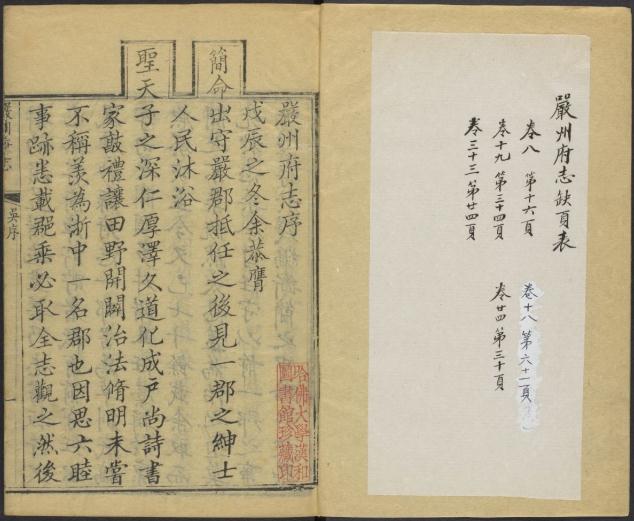 嚴州府志缺頁表
卷八 第十六頁
卷十八 第六十一頁
卷十九 第三十四頁
卷廿四 第三十頁
卷三十三 第廿四頁
嚴州府志序
戊辰之冬余恭膺
簡命出守嚴郡抵任之後見一郡之紳士
人民沐浴
聖天子之深仁厚澤久道化成戶尚詩書
家敔禮讓田野開闢治法脩明未嘗
不稱羡為浙中一名郡也因思六睦
事跡悉載郡乘必取全志觀之然後
哈佛大學漢和
圖書館珍藏印
嚴州府志
吳序
一